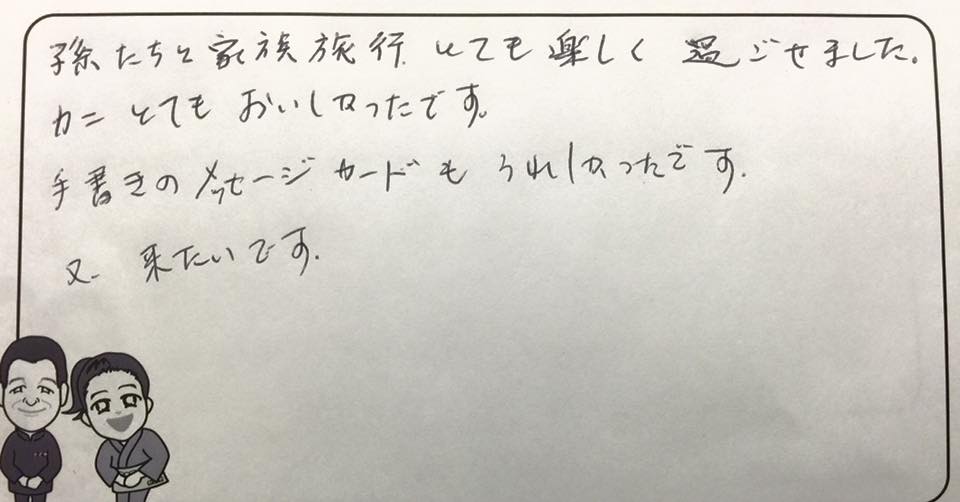 孫たちと家族旅行 とても楽しく 過ごせました。
カニ とても おいしかったです。
手書きの メッセージカードも うれしかったです.
又 来たいです.